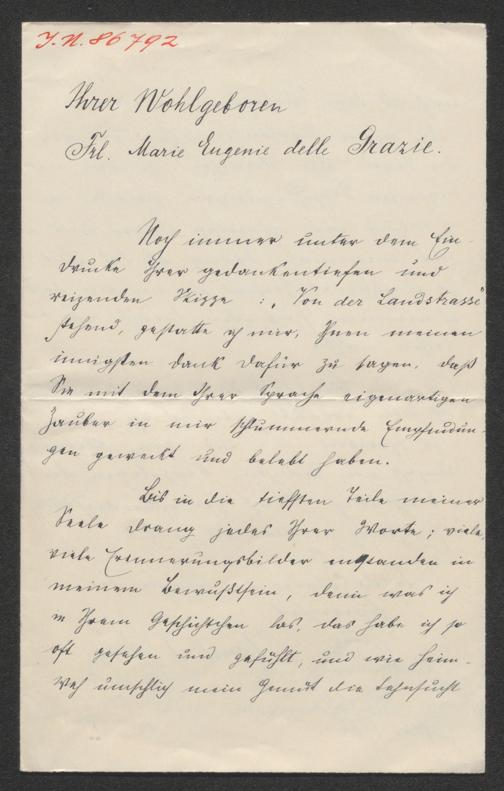 J.N. 86792
Ihrer Wohlgeboren
Frl. Marie Eugenie delle Grazie.
Noch immer unter dem Ein-
drucke Ihrer gedankentiefen und
reizenden Skizze: „Von der Landstrasse“
stehend, gestatte ich mir, Ihnen meinen
innigsten Dank dafür zu sagen, daß
Sie mit dem Ihrer Sprache eigenartigen
Zauber in mir schlummernde Empfindun-
gen geweckt und belebt haben.
Bis in die tiefsten Teile meiner
Seele drang jedes Ihrer Worte; viele,
viele Erinnerungsbilder entstanden in
meinem Bewußtsein, denn was ich
in Ihrem Geschichtchen las, das habe ich so
oft gesehen und gefühlt, und wie Heim-
weh umschlich mein Gemüt die Sehnsucht